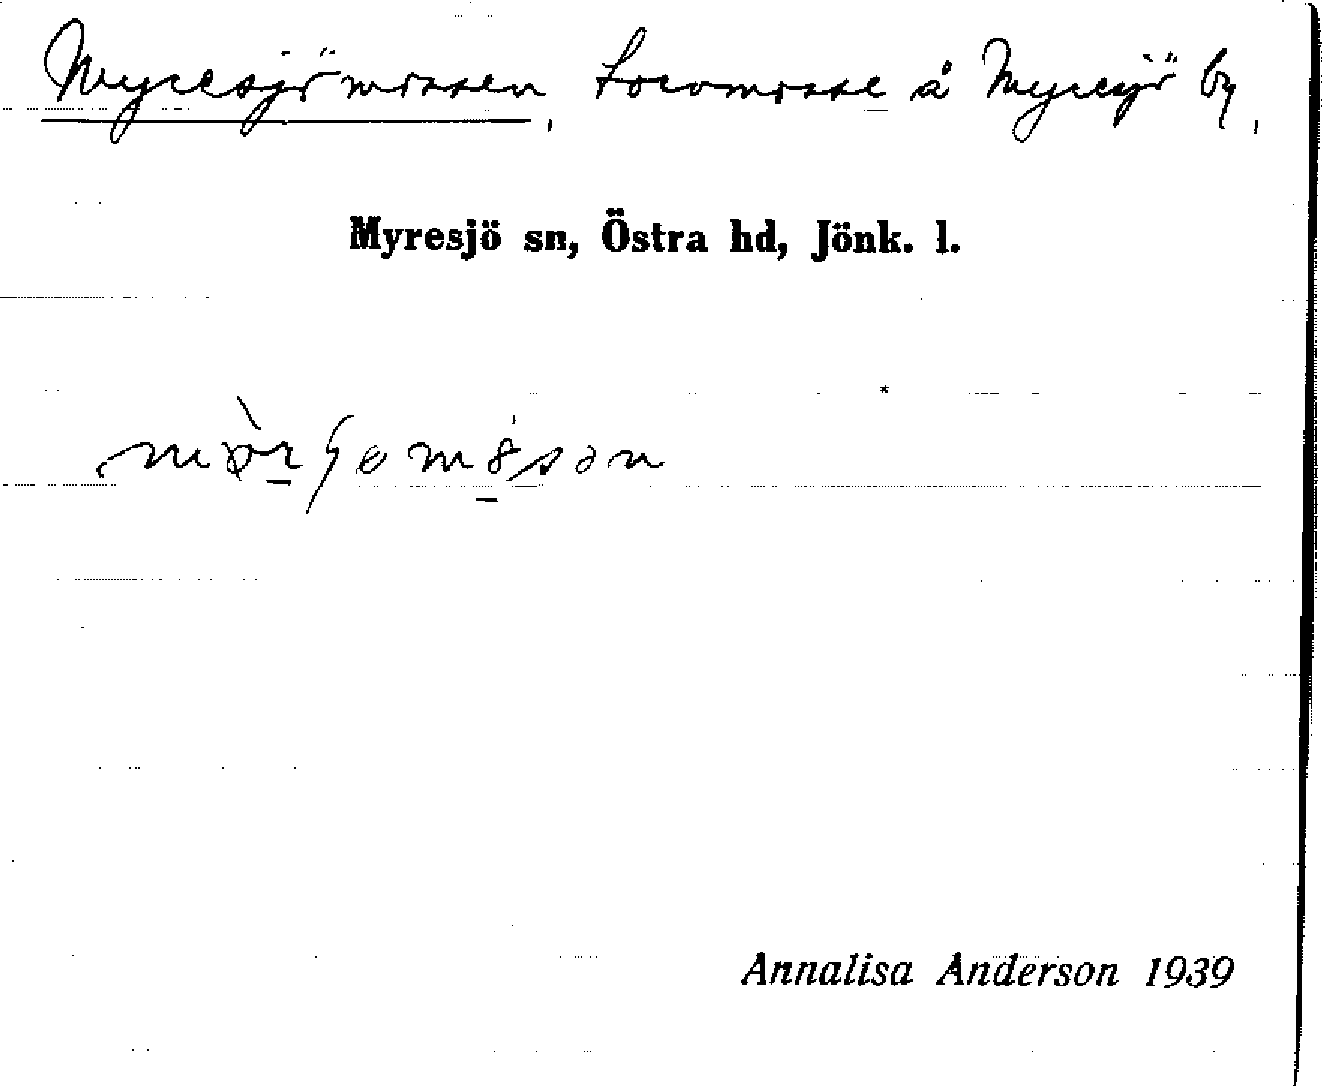 Myresjömossen, Torvmosse å Myresjö by,
Myresjö sn, Östra hd, Jönk. l.
Annalisa Anderson 1939